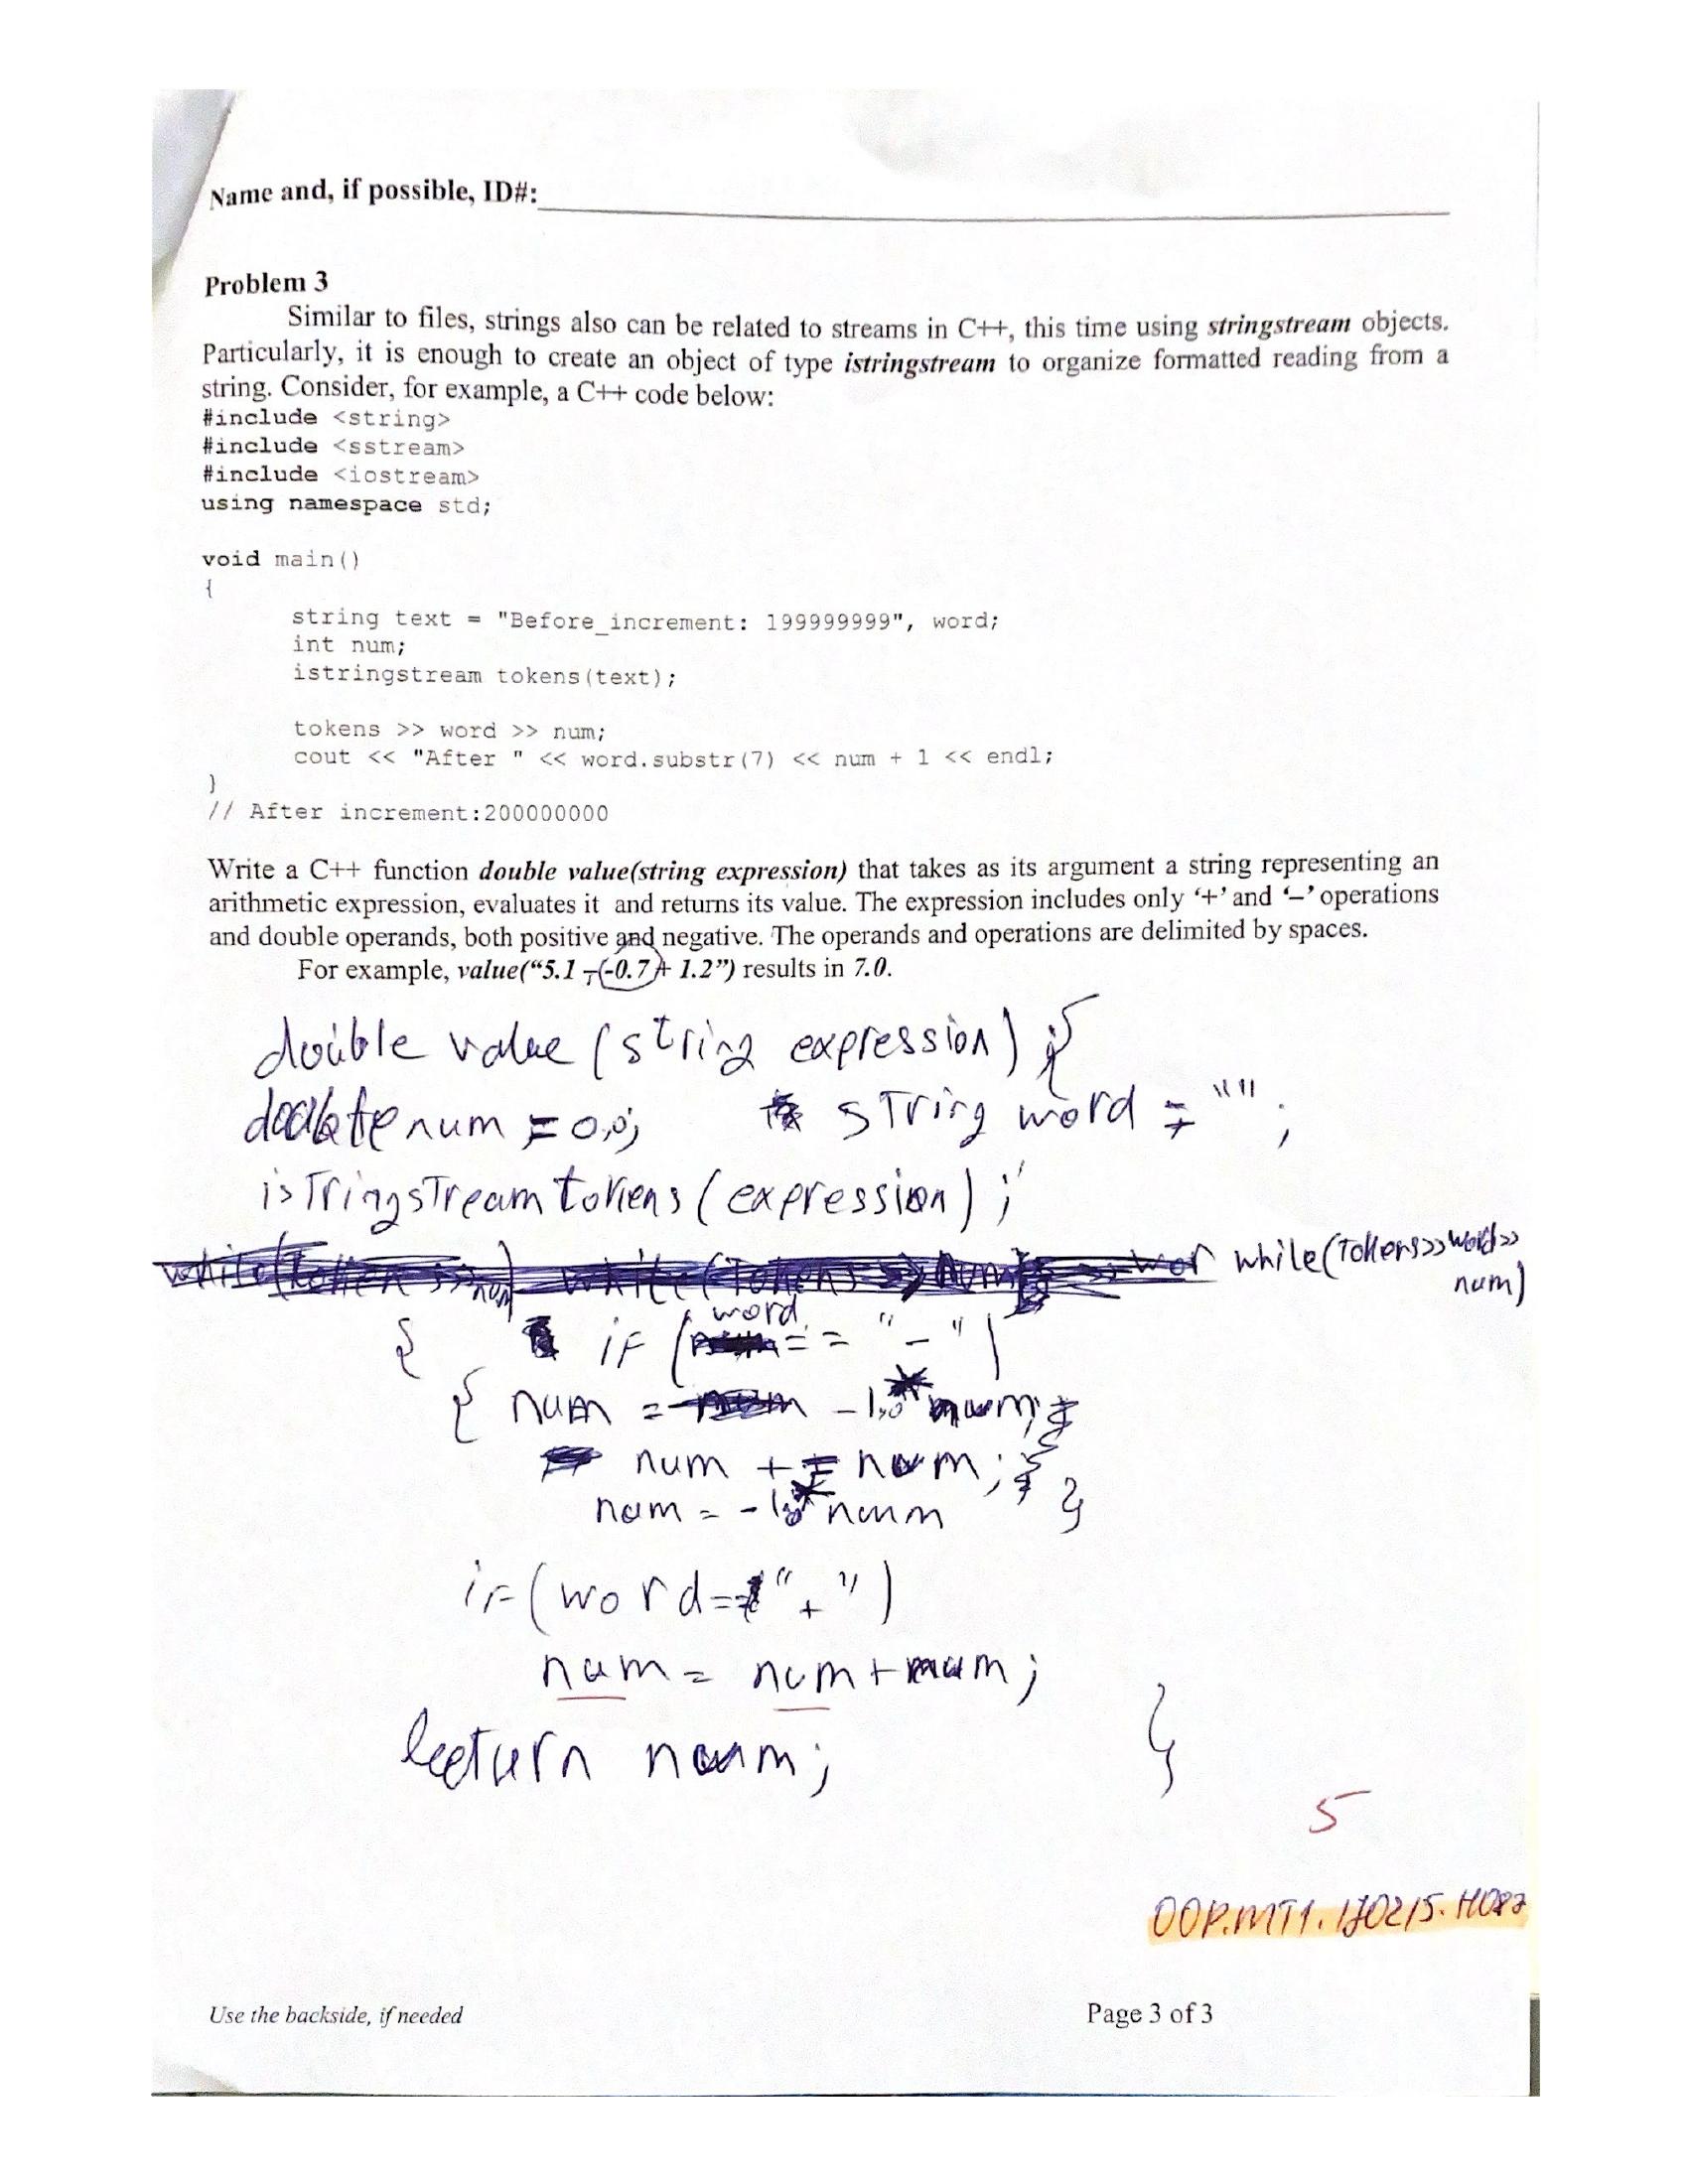 Name and, if possible, ID#:
Problem 3
Similar to files, strings also can be related to streams in C++, this time using stringstream objects.
Particularly, it is enough to create an object of type istringstream to organize formatted reading from a
string. Consider, for example, a C++ code below:
#include <string>
#include <sstream>
#include <iostream>
using namespace std;
void main()
{
string text = "Before_increment: 199999999", word;
int num;
istringstream tokens(text);
tokens >> word >> num;
cout << "After " << word.substr(7) << num + 1 << endl;
}
// After increment:200000000
Write a C++ function double value(string expression) that takes as its argument a string representing an
arithmetic expression, evaluates it and returns its value. The expression includes only ‘+’ and ‘–’ operations
and double operands, both positive and negative. The operands and operations are delimited by spaces.
For example, value(“5.1 - (-0.7) + 1.2”) results in 7.0.
double value (string expression) {
double num = 0.0; string word = "";
istringstream tokens (expression);
while(tokens>>word>>
num)
{ if (word == "-")
{ num = -1.0 * num;
num += num;
num = -1.0 * num }
if (word == "+")
num = num + num;
return num; }
5
OOP.MT1.170215.H087
Use the backside, if needed
Page 3 of 3